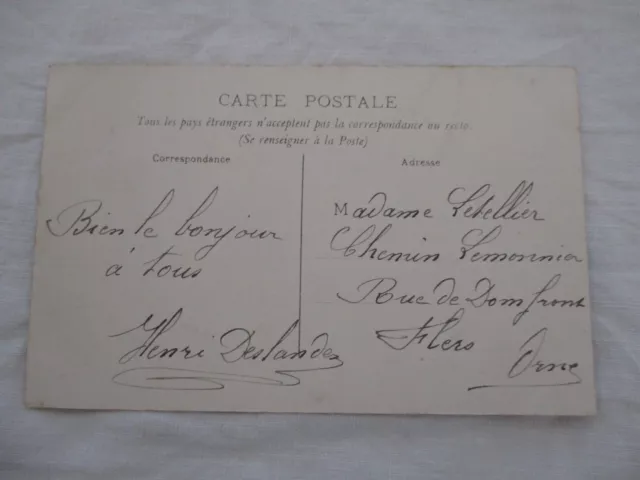 CARTE POSTALE
Tous les pays étrangers n'acceptent pas la correspondance au recto.
(Se renseigner à la Poste)
Correspondance
Bien le bonjour
à tous
Henri Deslandes
Adresse
Madame Letellier
Chemin Lemonnier
Rue de Domfront
Flers
Orne